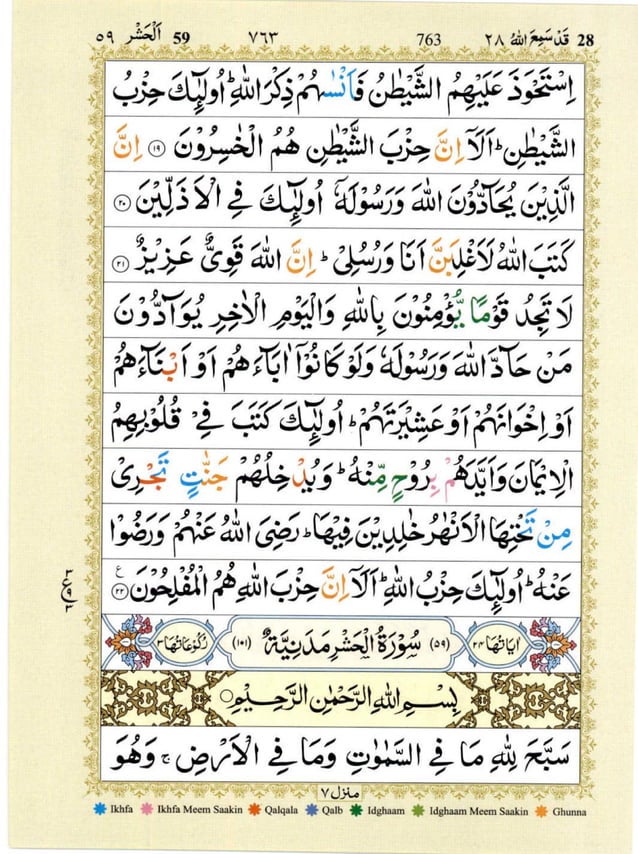 28 قَدْ سَمِعَ اللّٰهُ ٢٨ 763 ٧٦٣ 59 اَلْحَشْر ٥٩
اِسْتَحْوَذَ عَلَيْهِمُ الشَّيْطٰنُ فَاَنْسٰىهُمْ ذِكْرَ اللّٰهِ ؕ اُولٰٓئِكَ حِزْبُ
الشَّيْطٰنِ ؕ اَلَاۤ اِنَّ حِزْبَ الشَّيْطٰنِ هُمُ الْخٰسِرُوْنَ ﴿١٩﴾ اِنَّ
الَّذِيْنَ يُحَآدُّوْنَ اللّٰهَ وَرَسُوْلَهٗۤ اُولٰٓئِكَ فِى الْاَذَلِّيْنَ ﴿٢٠﴾
كَتَبَ اللّٰهُ لَاَغْلِبَنَّ اَنَا وَرُسُلِىْ ؕ اِنَّ اللّٰهَ قَوِىٌّ عَزِيْزٌ ﴿٢١﴾
لَا تَجِدُ قَوْمًا يُّؤْمِنُوْنَ بِاللّٰهِ وَالْيَوْمِ الْاٰخِرِ يُوَآدُّوْنَ
مَنْ حَآدَّ اللّٰهَ وَرَسُوْلَهٗ وَلَوْ كَانُوْۤا اٰبَآءَهُمْ اَوْ اَبْنَآءَهُمْ
اَوْ اِخْوَانَهُمْ اَوْ عَشِيْرَتَهُمْ ؕ اُولٰٓئِكَ كَتَبَ فِىْ قُلُوْبِهِمُ
الْاِيْمَانَ وَاَيَّدَهُمْ بِرُوْحٍ مِّنْهُ ؕ وَيُدْخِلُهُمْ جَنّٰتٍ تَجْرِىْ
مِنْ تَحْتِهَا الْاَنْهٰرُ خٰلِدِيْنَ فِيْهَا ؕ رَضِىَ اللّٰهُ عَنْهُمْ وَرَضُوْا
عَنْهُ ؕ اُولٰٓئِكَ حِزْبُ اللّٰهِ ؕ اَلَاۤ اِنَّ حِزْبَ اللّٰهِ هُمُ الْمُفْلِحُوْنَ ﴿٢٢﴾ ع
٣ ع ٩ ٣
اٰيَاتُهَا ٢٤ (٥٩) سُوْرَةُ الْحَشْرِ مَدَنِيَّةٌ (١٠١) رُكُوْعَاتُهَا ٣
بِسْمِ اللّٰهِ الرَّحْمٰنِ الرَّحِيْمِ
سَبَّحَ لِلّٰهِ مَا فِى السَّمٰوٰتِ وَمَا فِى الْاَرْضِ ۚ وَهُوَ
منزل ٧
Ikhfa Ikhfa Meem Saakin Qalqala Qalb Idghaam Idghaam Meem Saakin Ghunna